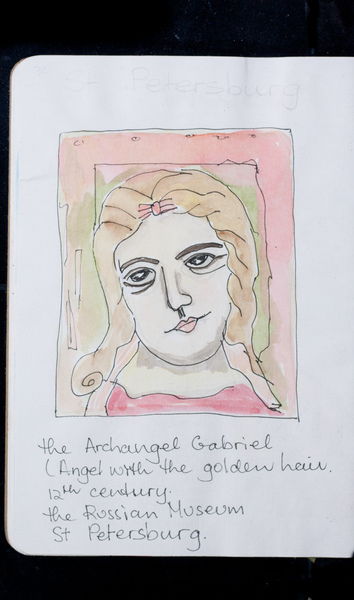 St Petersburg
the Archangel Gabriel
(Angel with the golden hair.
12th century.
the Russian Museum
St Petersburg.